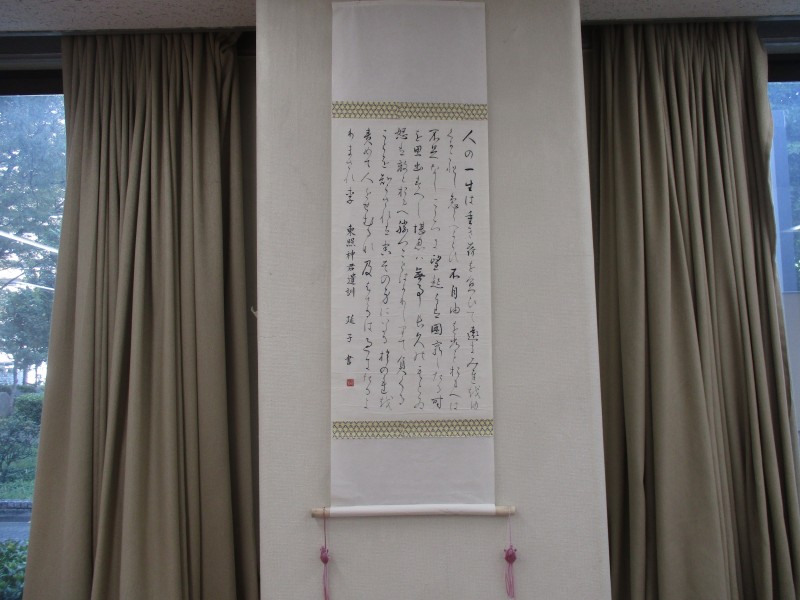 人の一生は重き荷を負ひて遠きみちをゆ
くか如し急くへからす不自由を常とおもへは
不足なしこころに望起らは困窮したる時
を思出すへし堪忍は無事長久のもとゐ
怒は敵とおもへ勝つことはかりしりて負くる
ことを知らされは害その身にいたるおのれを
責めて人をせむるな及はさるは過きたるよ
りまされり 東照神君遺訓 子書